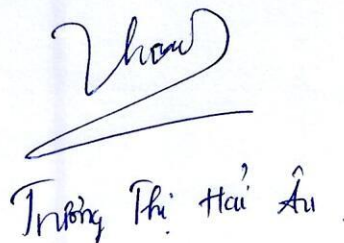 Trương Thị Hải Âu